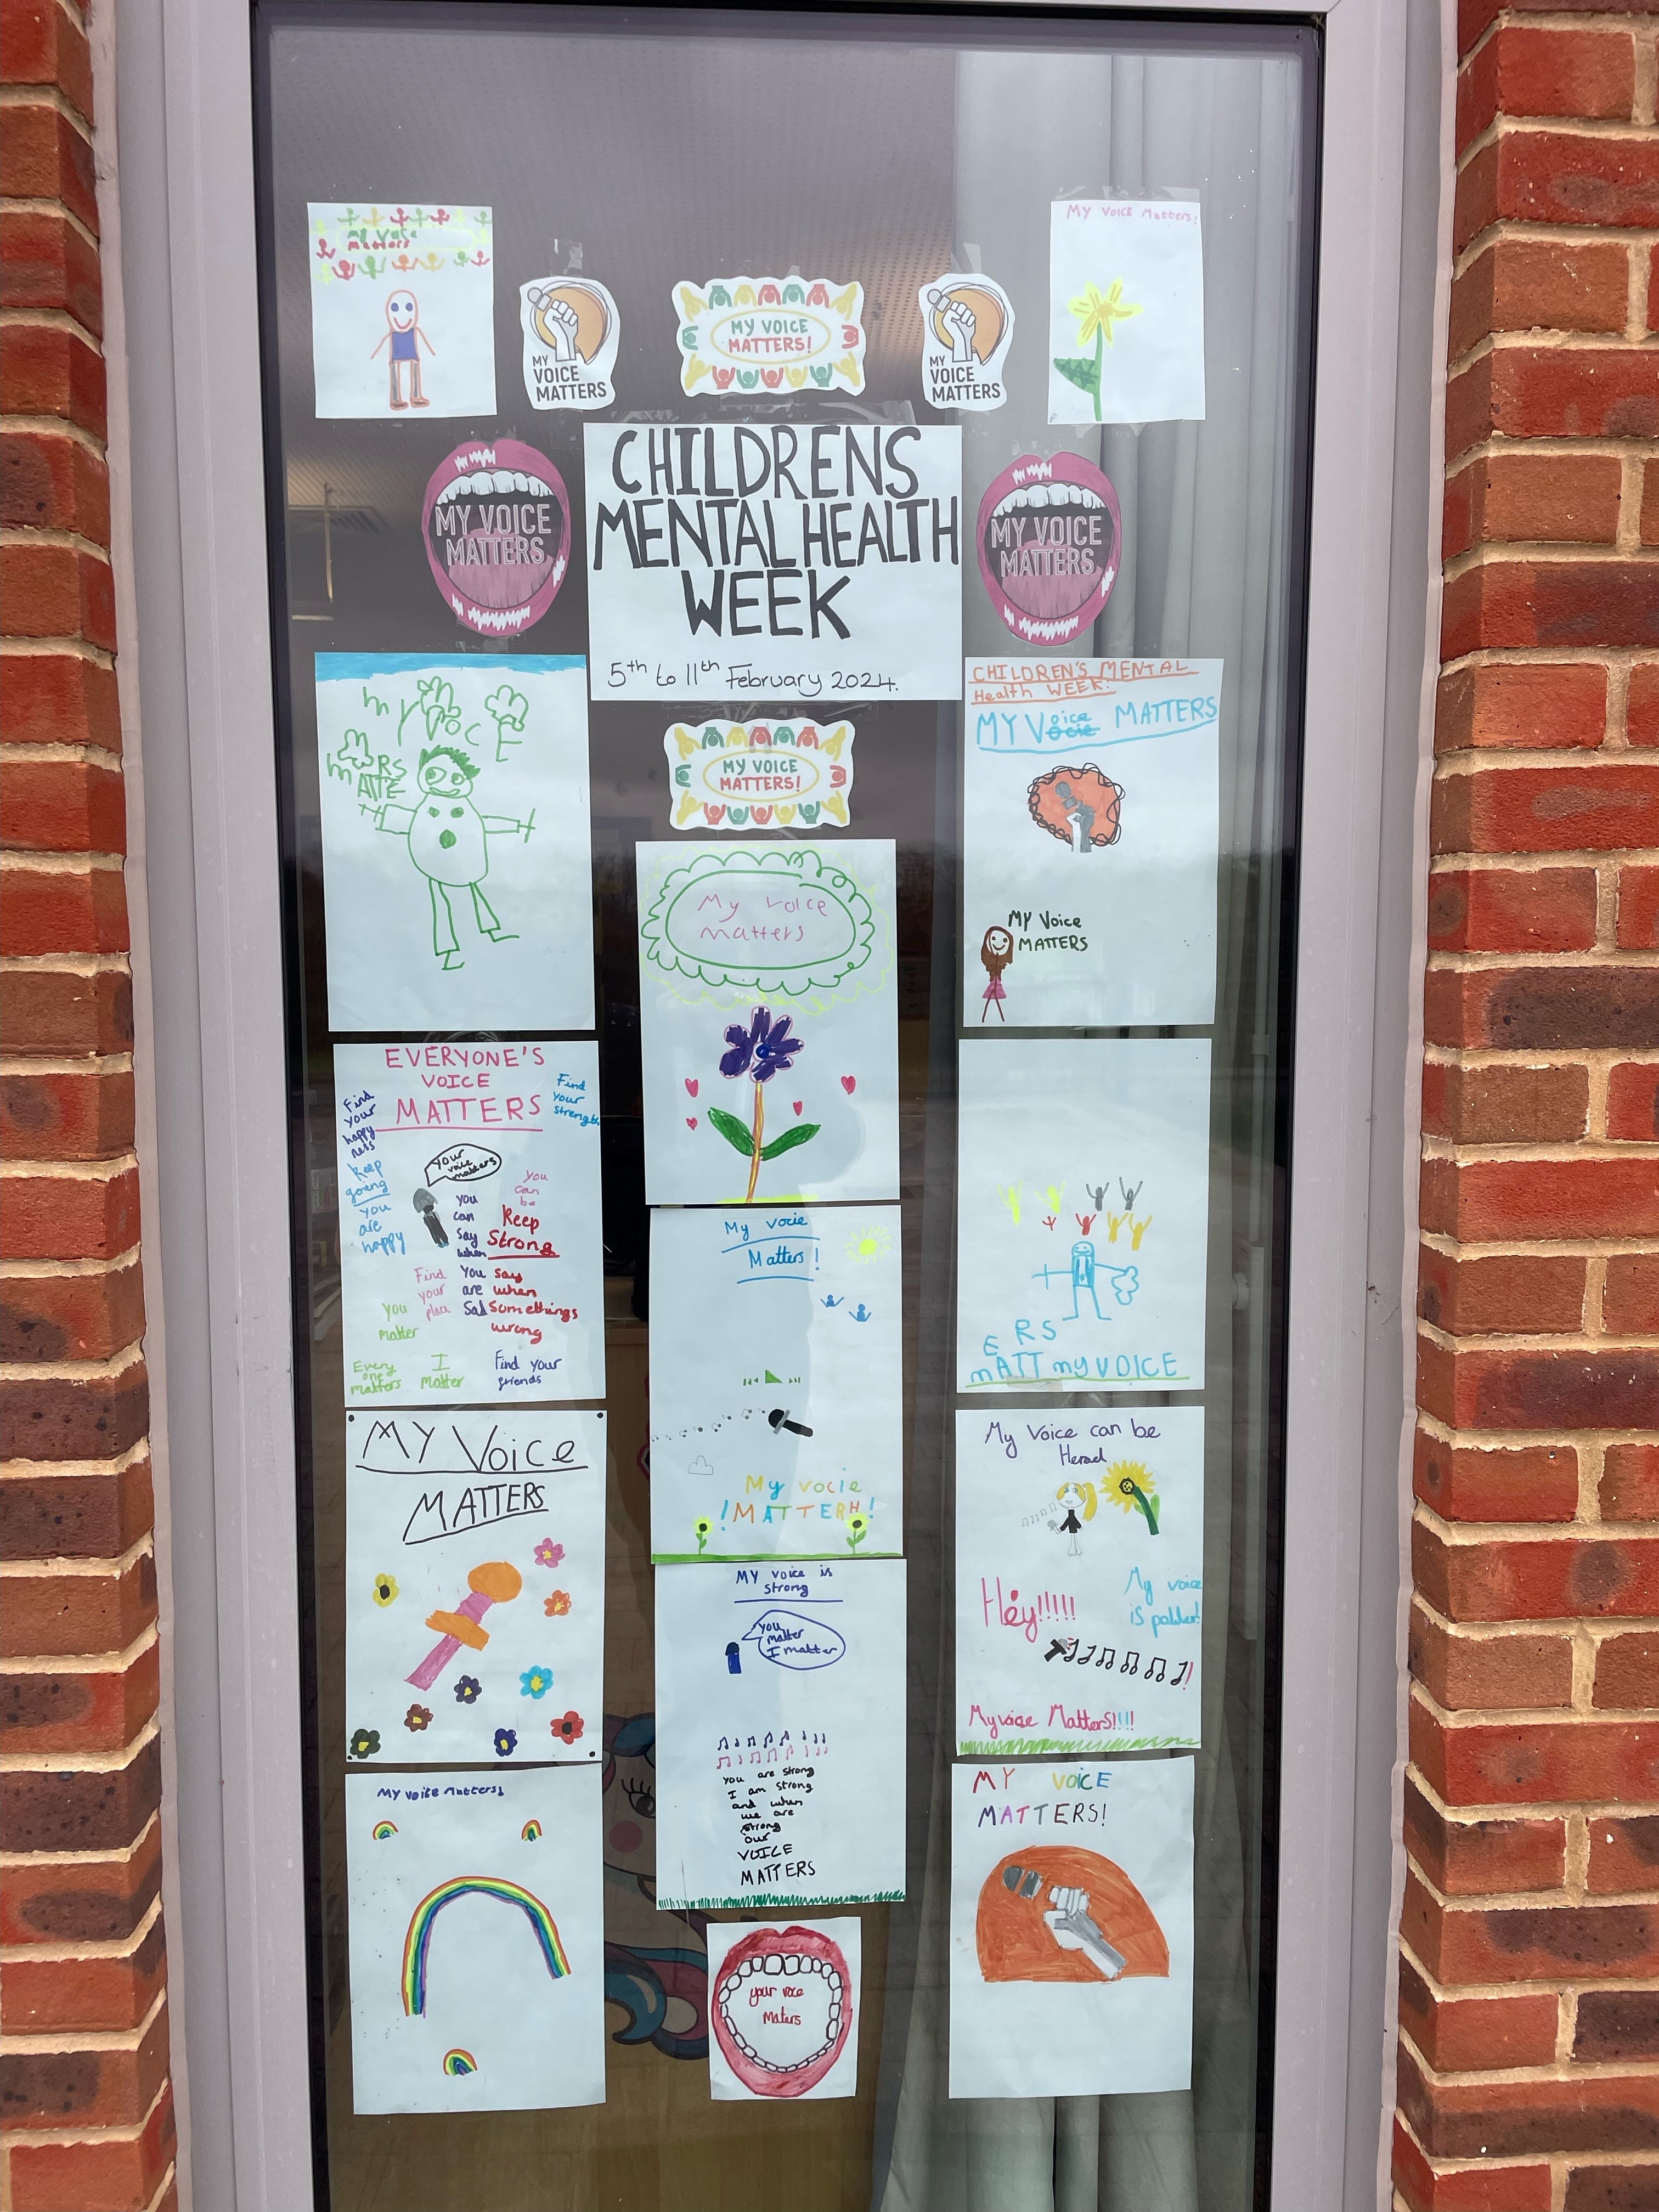 my voice
matters
MY
VOICE
MATTERS
MY VOICE
MATTERS!
MY
VOICE
MATTERS
MY VOICE Matters!
MY VOICE
MATTERS
CHILDRENS
MENTAL HEALTH
WEEK
5th to 11th February 2024.
MY VOICE
MATTERS
my
VOICE
mATTERS
MY VOICE
MATTERS!
CHILDREN'S MENTAL
Health WEEK!
MY Voice MATTERS
MY Voice
MATTERS
My voice
matters
EVERYONE'S
VOICE
MATTERS
Find
your
happy
ness
Keep
going
you
are
happy
Find
your
strength
Your
voice
matters
you
can
say
when
You
are
Sad
you
can
be
Keep
Strong
say
when
Somethings
wrong
Find
your
place
you
matter
Every
one
matters
I
matter
Find your
friends
My vocie
Matters!
My vocie
!MATTERH!
ERS
mATT my VOICE
MY Voice
MATTERS
My Voice can be
Heed
Hey!!!!!
My voice
is
My voice Matters!!!!
MY voice is
strong
you
matter
I matter
you are strong
I am strong
and when
we are
strong
our
VOICE
MATTERS
My voice matters!
MY VOICE
MATTERS!
your voce
Maters